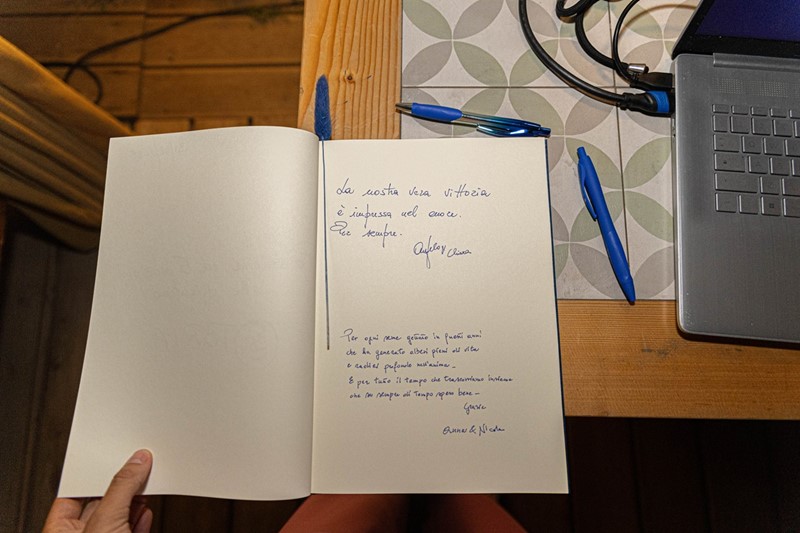 La nostra vera vittoria
è impressa nel cuore.
Per sempre.
Per ogni seme gettato in questi anni
che ha generato alberi pieni di vita
e radici profonde nell'anima.
E per tutto il tempo che trascorriamo insieme
che sa sempre di tempo speso bene.
Grazie
& Nicola